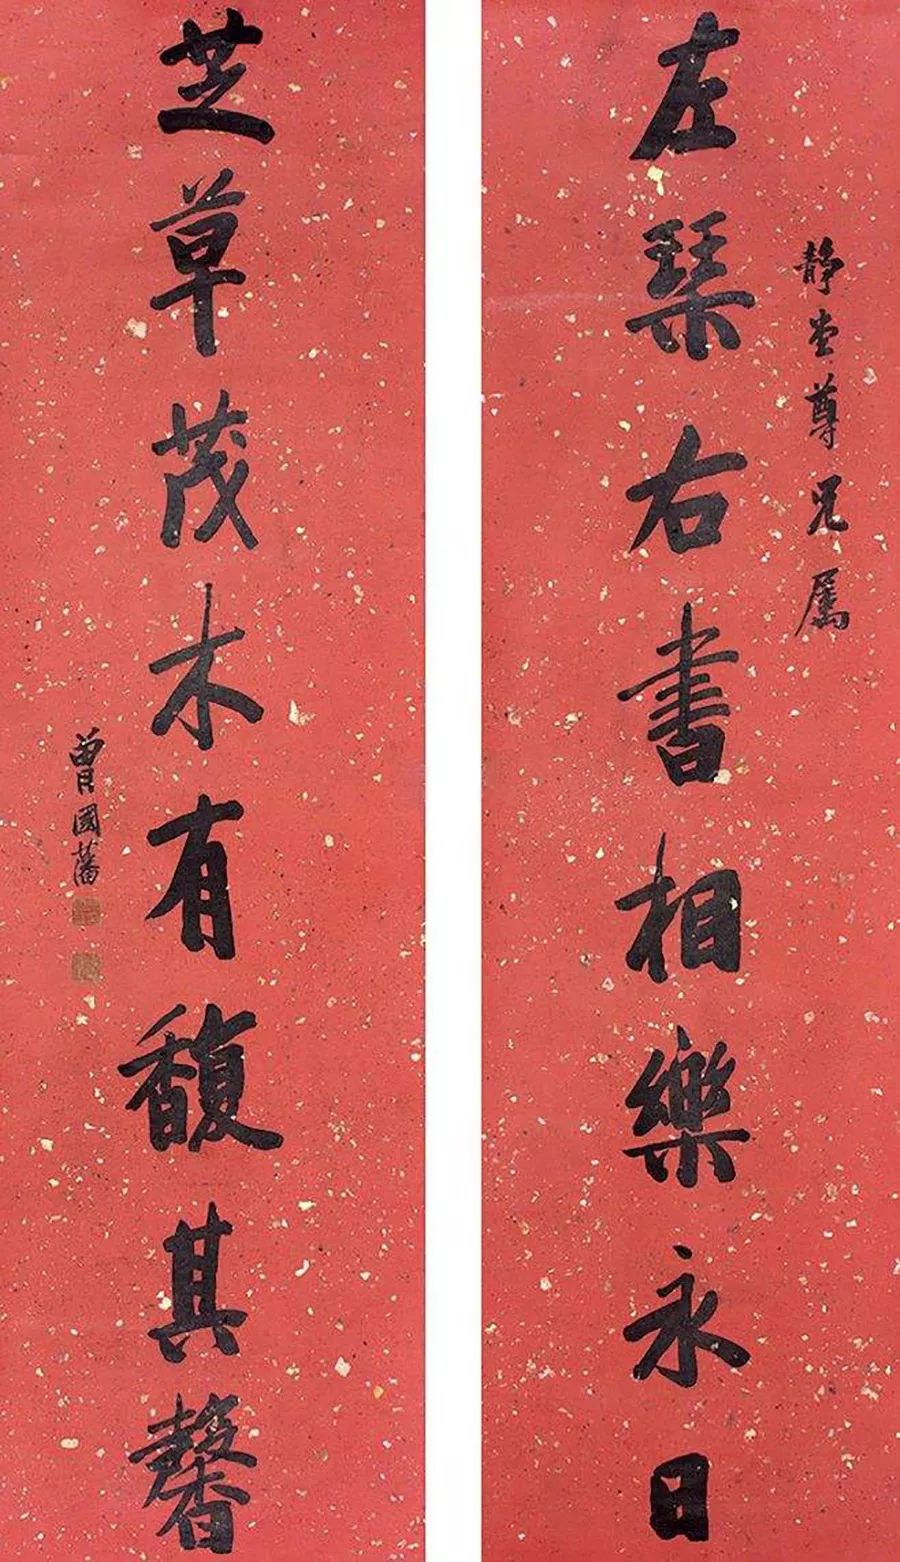 静堂尊兄属
左琴右書相樂永日
芝草茂木有馥其馨
曾國藩